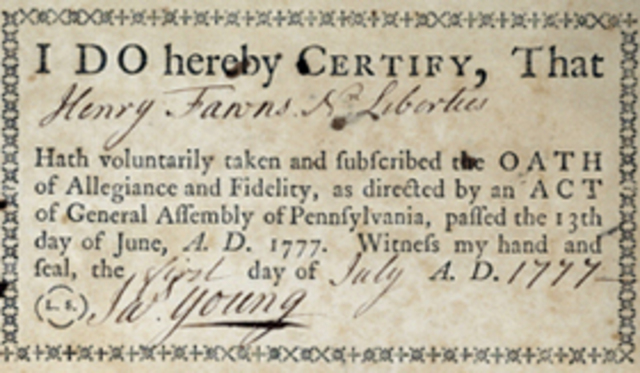 I DO hereby CERTIFY, That
Henry Fawns. Nn Liberties
Hath voluntarily taken and ſubſcribed the OATH
of Allegiance and Fidelity, as directed by an ACT
of General Aſſembly of Pennſylvania, paſſed the 13th
day of June, A. D. 1777. Witneſs my hand and
ſeal, the first day of July A. D. 1777
(L. S.) Jas. Young